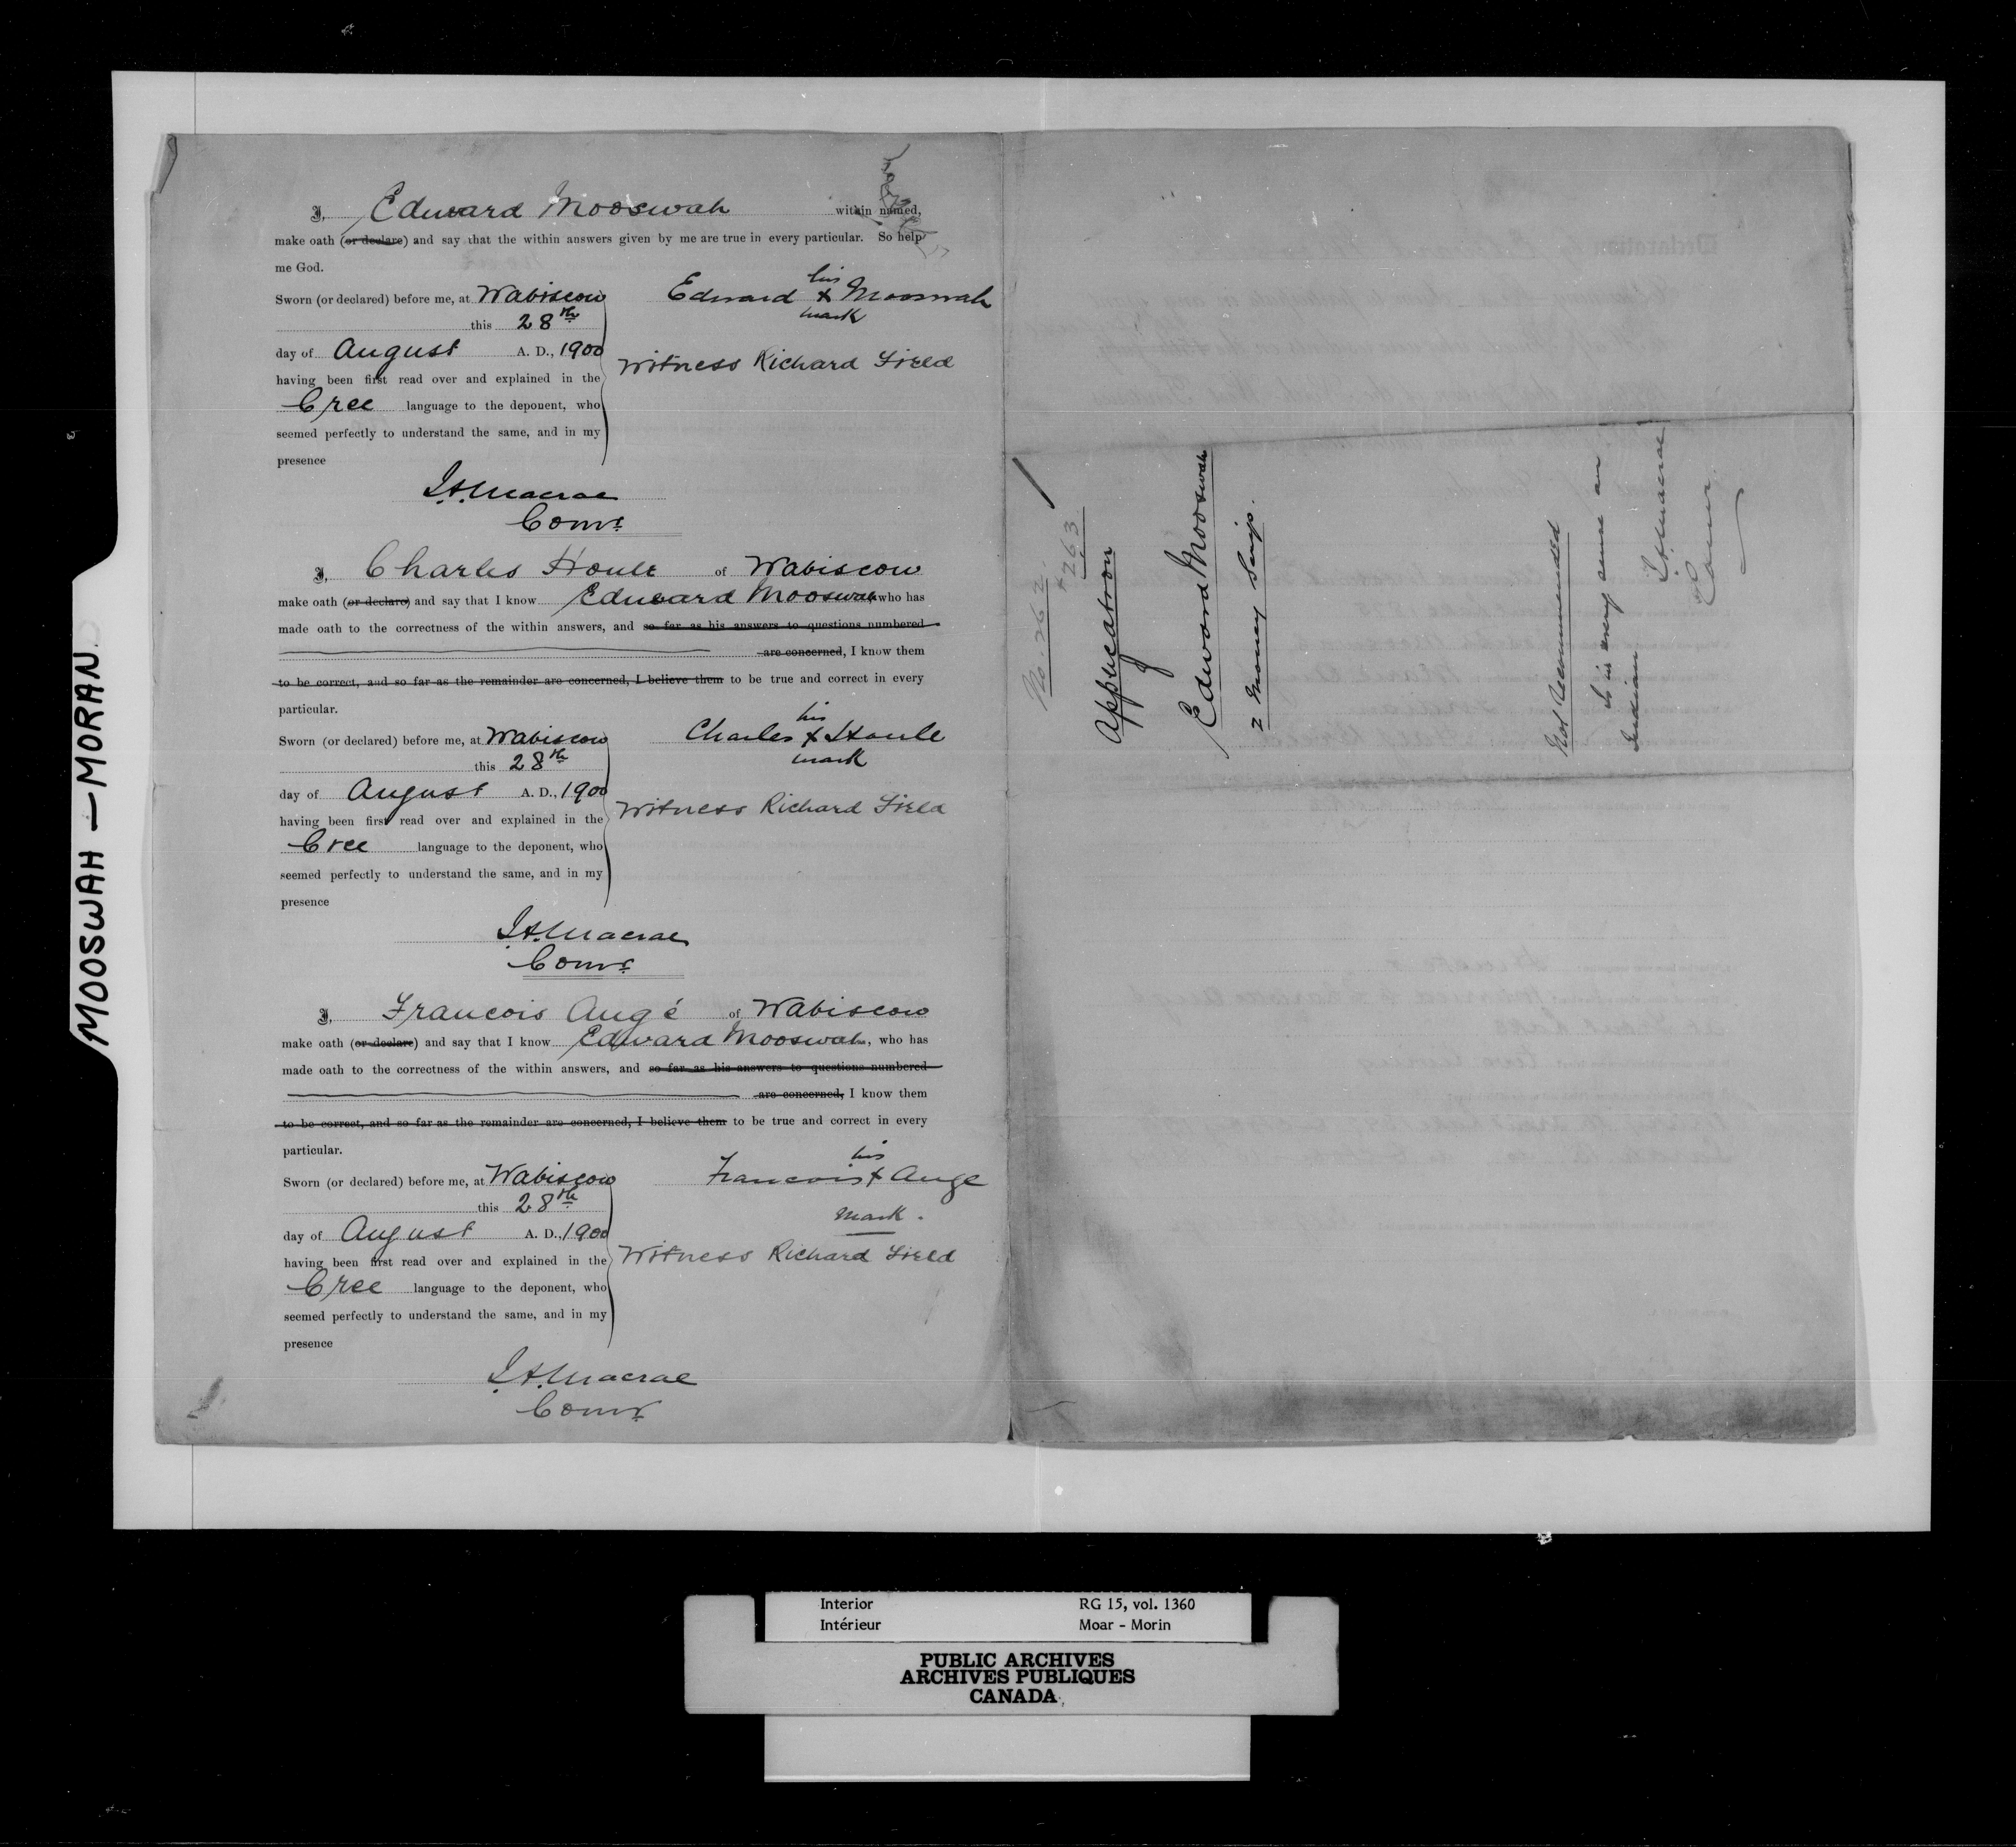 MOOSWAH — MORAN
I, Edward Mooswah within named,
make oath (or declare) and say that the within answers given by me are true in every particular. So help
me God.
Sworn (or declared) before me, at Wabiscow
this 28th
day of August A. D., 1900
having been first read over and explained in the
Cree language to the deponent, who
seemed perfectly to understand the same, and in my
presence
his
Edward x Mooswah
mark
Witness Richard Field
J.A. Macrae
Comr.
I, Charles Houle of Wabiscow
make oath (or declare) and say that I know Edward Mooswah who has
made oath to the correctness of the within answers, and so far as his answers to questions numbered
are concerned, I know them
to be correct, and so far as the remainder are concerned, I believe them to be true and correct in every
particular.
Sworn (or declared) before me, at Wabiscow
this 28th
day of August A. D., 1900
having been first read over and explained in the
Cree language to the deponent, who
seemed perfectly to understand the same, and in my
presence
his
Charles x Houle
mark
Witness Richard Field
J.A. Macrae
Comr.
I, Francois Augé of Wabiscow
make oath (or declare) and say that I know Edward Mooswah, who has
made oath to the correctness of the within answers, and so far as his answers to questions numbered
are concerned, I know them
to be correct, and so far as the remainder are concerned, I believe them to be true and correct in every
particular.
Sworn (or declared) before me, at Wabiscow
this 28th
day of August A. D., 1900
having been first read over and explained in the
Cree language to the deponent, who
seemed perfectly to understand the same, and in my
presence
his
Francois x Auge
mark.
Witness Richard Field
J.A. Macrae
Comr.
No. 262.
+ 263
Application
Edward Mooswah
2 Money Scrip.
Not recommended
is in every sense an
Indian.
J.A. Macrae
Comr.
Interior RG 15, vol. 1360
Intérieur Moar - Morin
PUBLIC ARCHIVES
ARCHIVES PUBLIQUES
CANADA